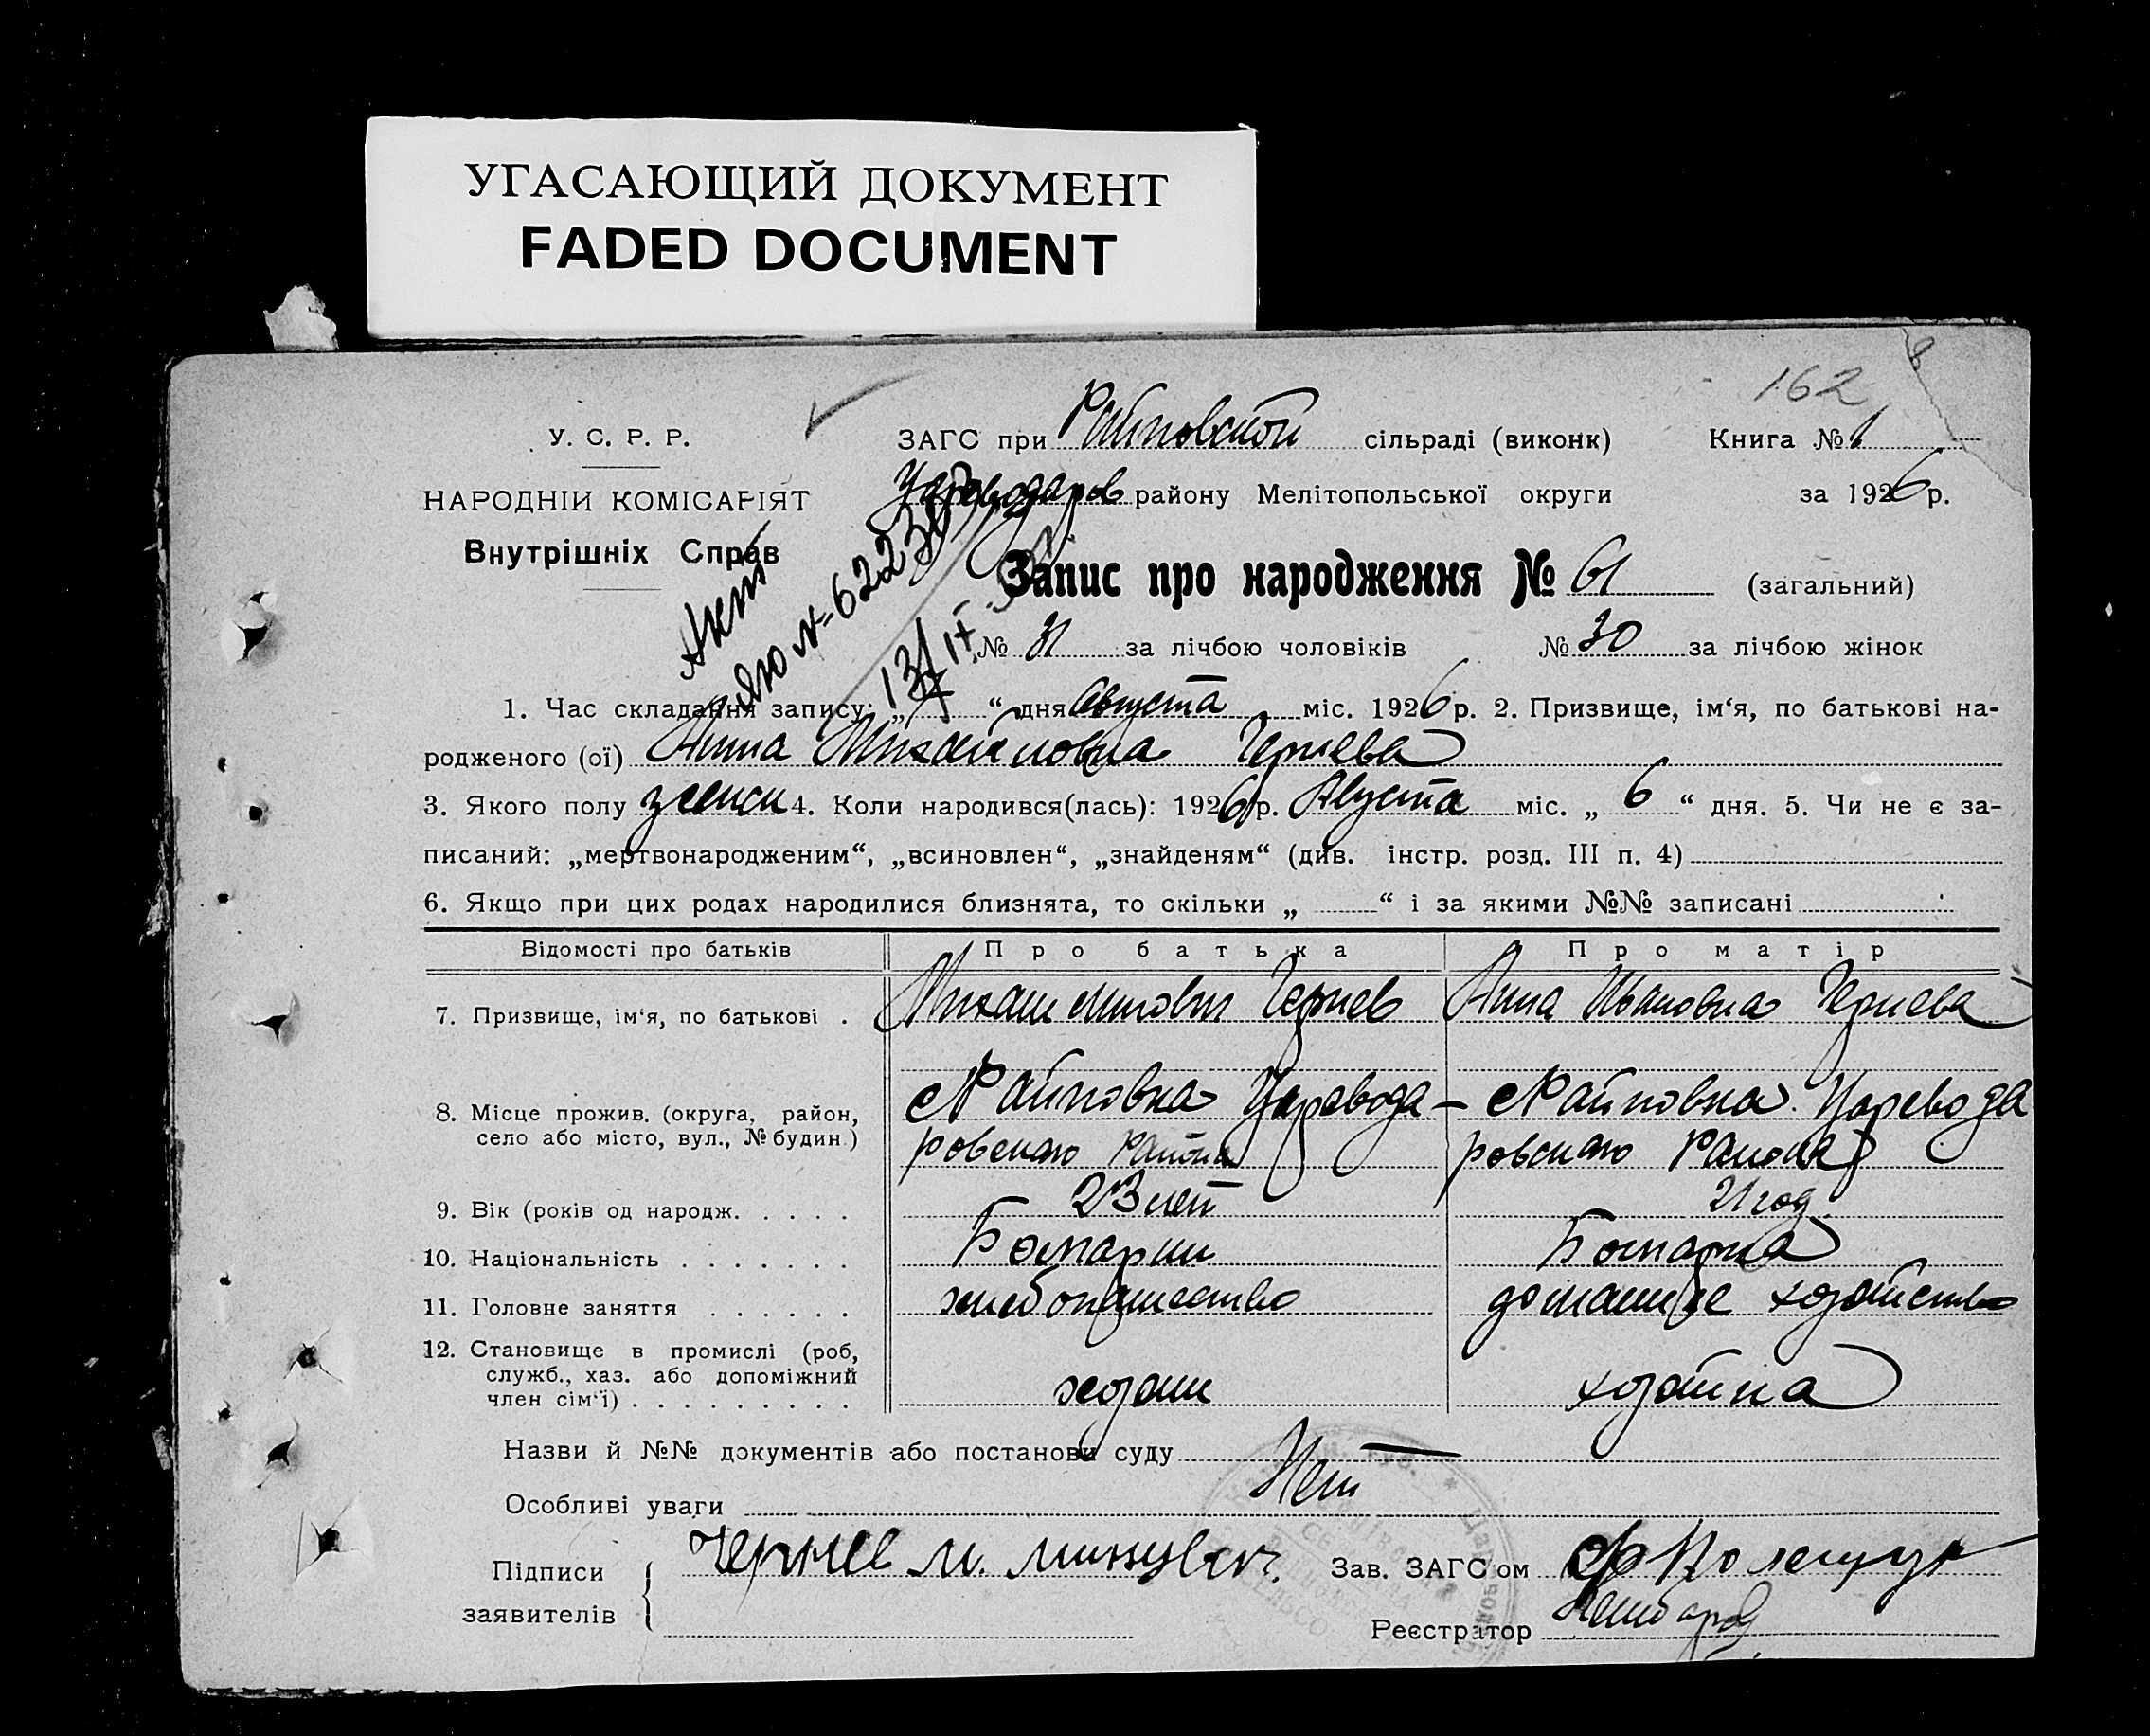 УГАСАЮЩИЙ ДОКУМЕНТ
FADED DOCUMENT
162
У. С. Р. Р.
НАРОДНІЙ КОМІСАРІЯТ
Внутрішніх Справ
ЗАГС при Райновской сільраді (виконк) Книга № 1
Цареводаров району Мелітопольської округи за 1926 р.
Запис про народження № 61 (загальний)
№ 31 за лічбою чоловіків № 30 за лічбою жінок
Акт
№ 62230
1. Час складання запису: „ “ дня Августа міс. 1926 р. 2. Призвище, ім‘я, по батькові на-
родженого (ої) Анна Михайловна Чернева
3. Якого полу женск 4. Коли народився(лась): 1926 р. Августа міс. „ 6 “ дня. 5. Чи не є за-
писаний: „мертвонародженим“, „всиновлен“, „знайденям“ (див. інстр. розд. III п. 4)
6. Якщо при цих родах народилися близнята, то скільки „ “ і за якими №№ записані
Відомості про батьків Про батька Про матір
7. Призвище, ім‘я, по батькові . Михаил Минович Чернев Анна Ивановна Чернева
8. Місце прожив. (округа, район, село або місто, вул., № будин.) с Райновка Царевода- с Райновка Царевода
ровскаго Района ровскаго Района
9. Вік (років од народж. . . . . 23 лет 21 год.
10. Національність . . . . . . . Болгарин Болгарка
11. Головне заняття . . . . . . хлебопашество домашнее хозяйство
12. Становище в промислі (роб, служб., хаз. або допоміжний член сім‘ї) . . . . . . . . . хозяин хозяйка
Назви й №№ документів або постанови суду
Нет
Особливі уваги
Підписи
заявителів
Чернев М. Минович.
Зав. ЗАГС‘ом Полещук
Реєстратор